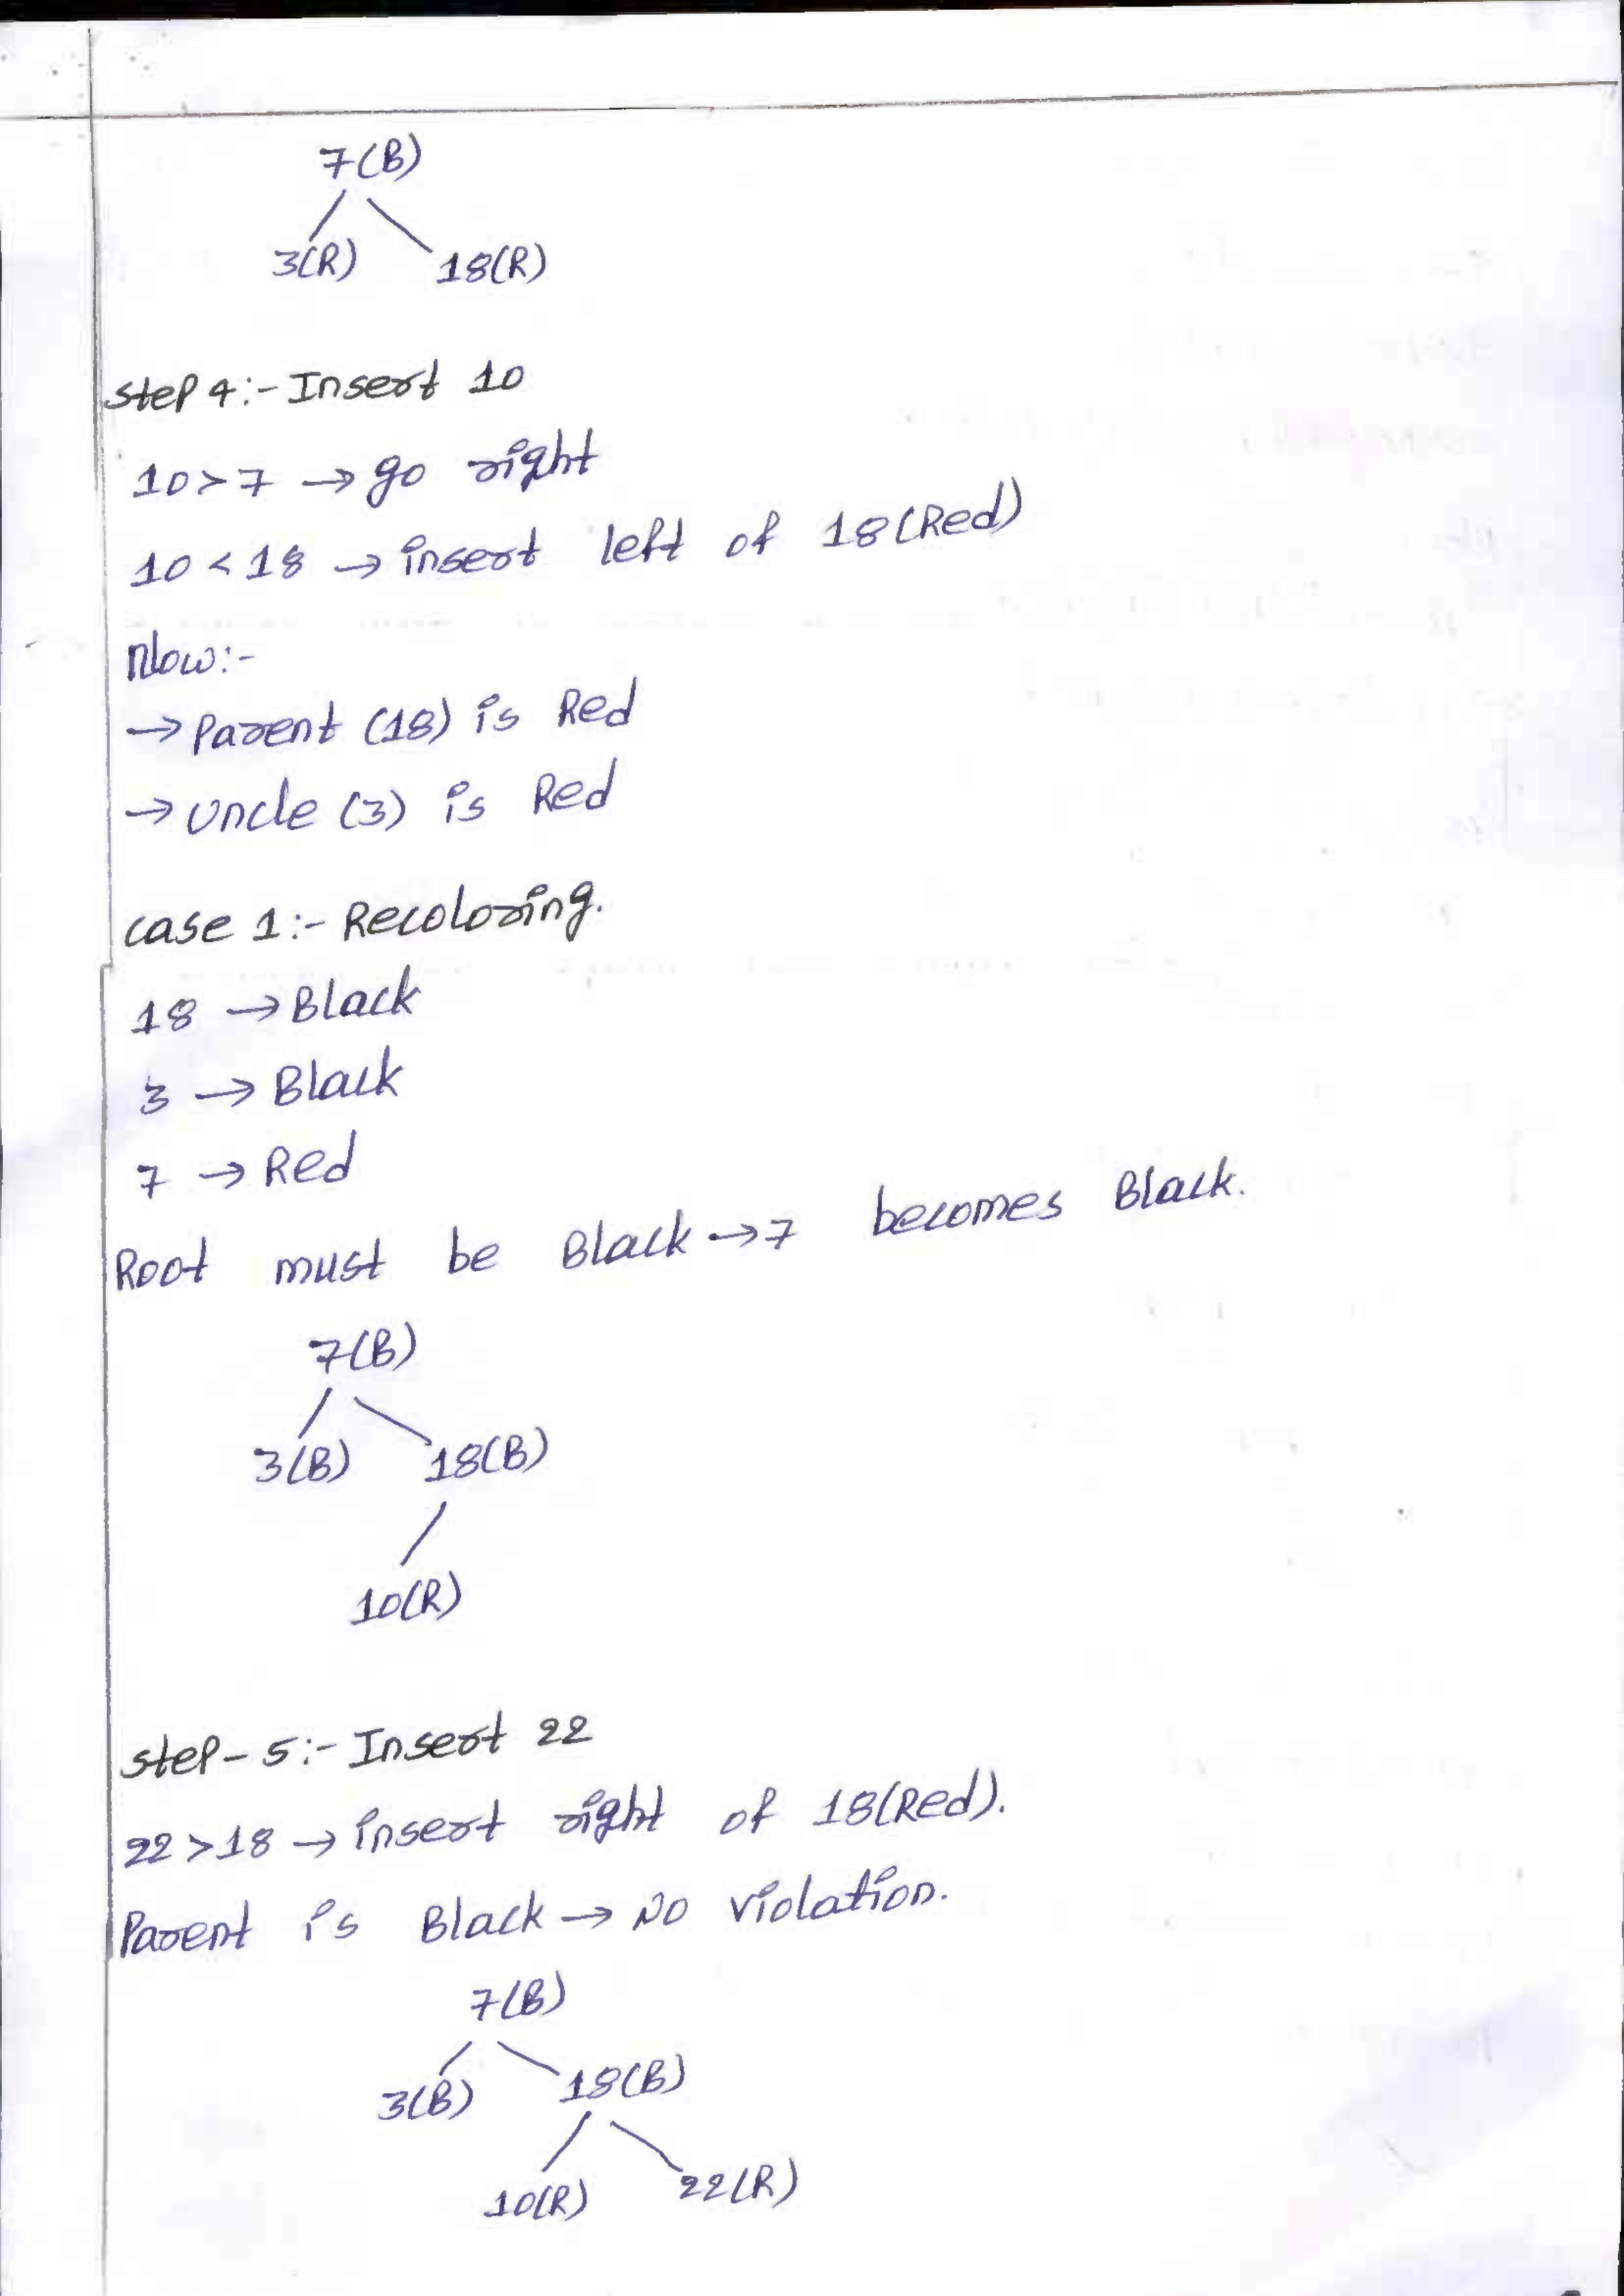 7(B)
3(R) 18(R)
Step 4:- Insert 10
10 > 7 → go right
10 < 18 → insert left of 18(Red)
Now:-
→ Parent (18) is Red
→ Uncle (3) is Red
Case 1:- Recoloring.
18 → Black
3 → Black
7 → Red
Root must be Black → 7 becomes Black.
7(B)
3(B) 18(B)
10(R)
Step-5:- Insert 22
22 > 18 → insert right of 18(Red).
Parent is Black → No violation.
7(B)
3(B) 18(B)
10(R) 22(R)